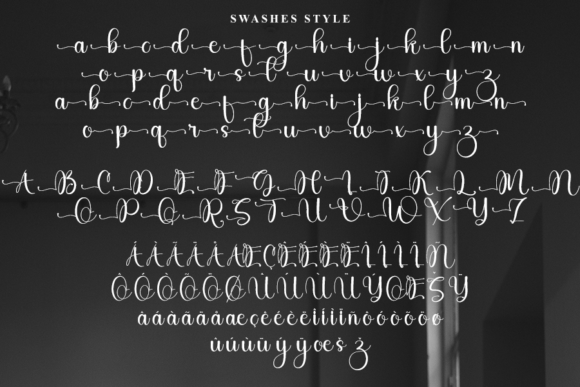 SWASHES STYLE
a b c d e f g h i j k l m n
o p q r s t u v w x y z
a b c d e f g h i j k l m n
o p q r s t u v w x y z
A B C D E F G H I J K L M N
O P Q R S T U V W X Y Z
Á À Ã Ä Å Æ Ç È É Ë Ê Ì Í Î Ï Ñ
Ò Ó Ô Õ Ö Ø Ù Ú Û Ü Ý Œ Š Ÿ
à á â ã ä å æ ç è é ê ë ì í î ï ñ ò ó ô õ ö
ù ú û ü ý ÿ œ š ž